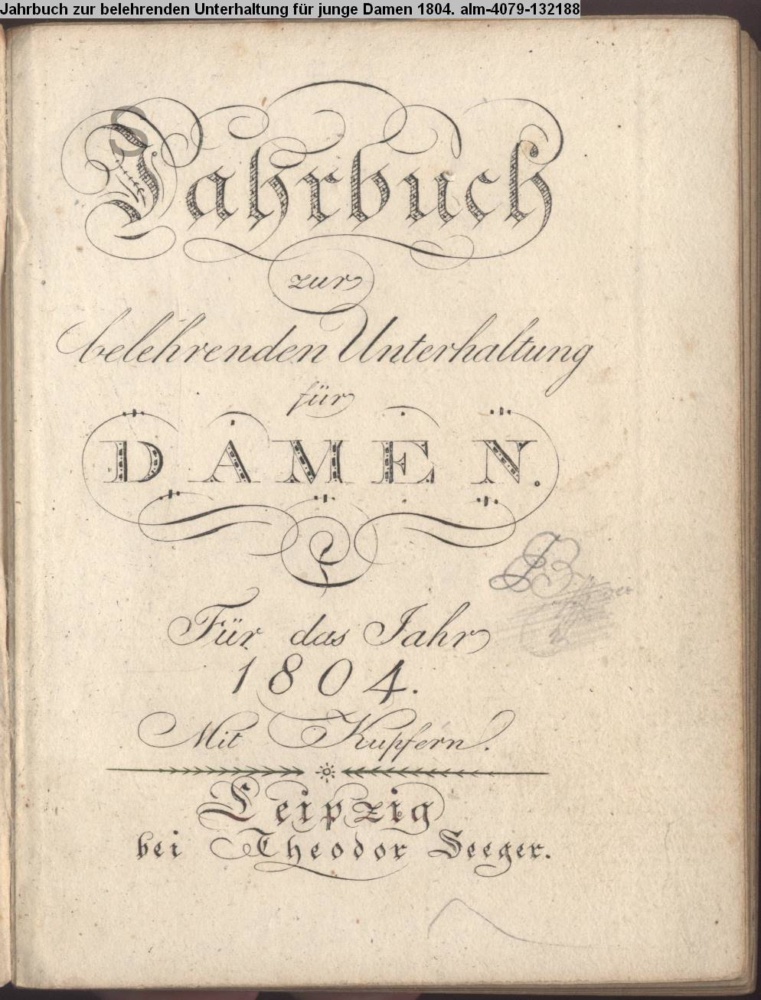 Jahrbuch zur belehrenden Unterhaltung für junge Damen 1804. alm-4079-132188
Jahrbuch
zur
belehrenden Unterhaltung
für
DAMEN.
Für das Jahr
1804.
Mit Kupfern.
Leipzig
bei Theodor Seeger.